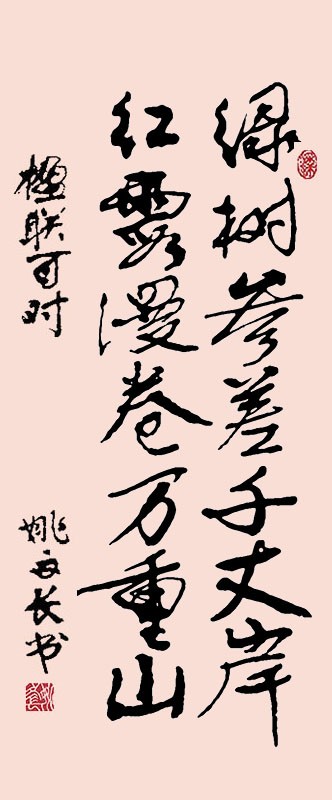 绿树参差千丈岸
红霞漫卷万重山
楹联可对
姚长书